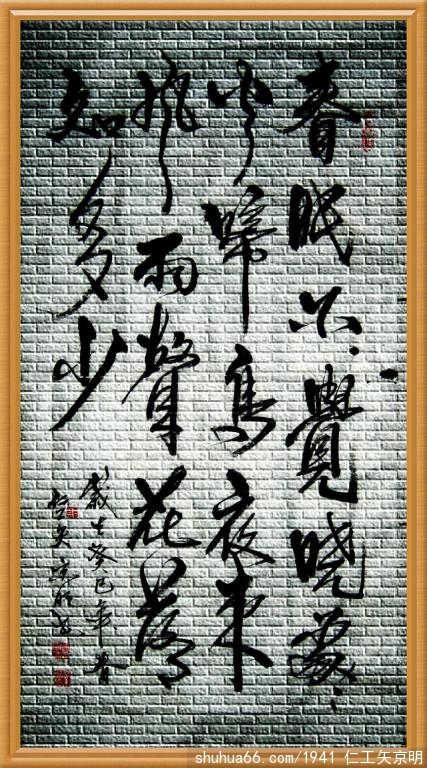 春眠不覺曉處〻
聞啼鳥夜來
風雨聲花落
知多少
歲在癸巳年春
shuhua66.com/1941 仁工矢京明